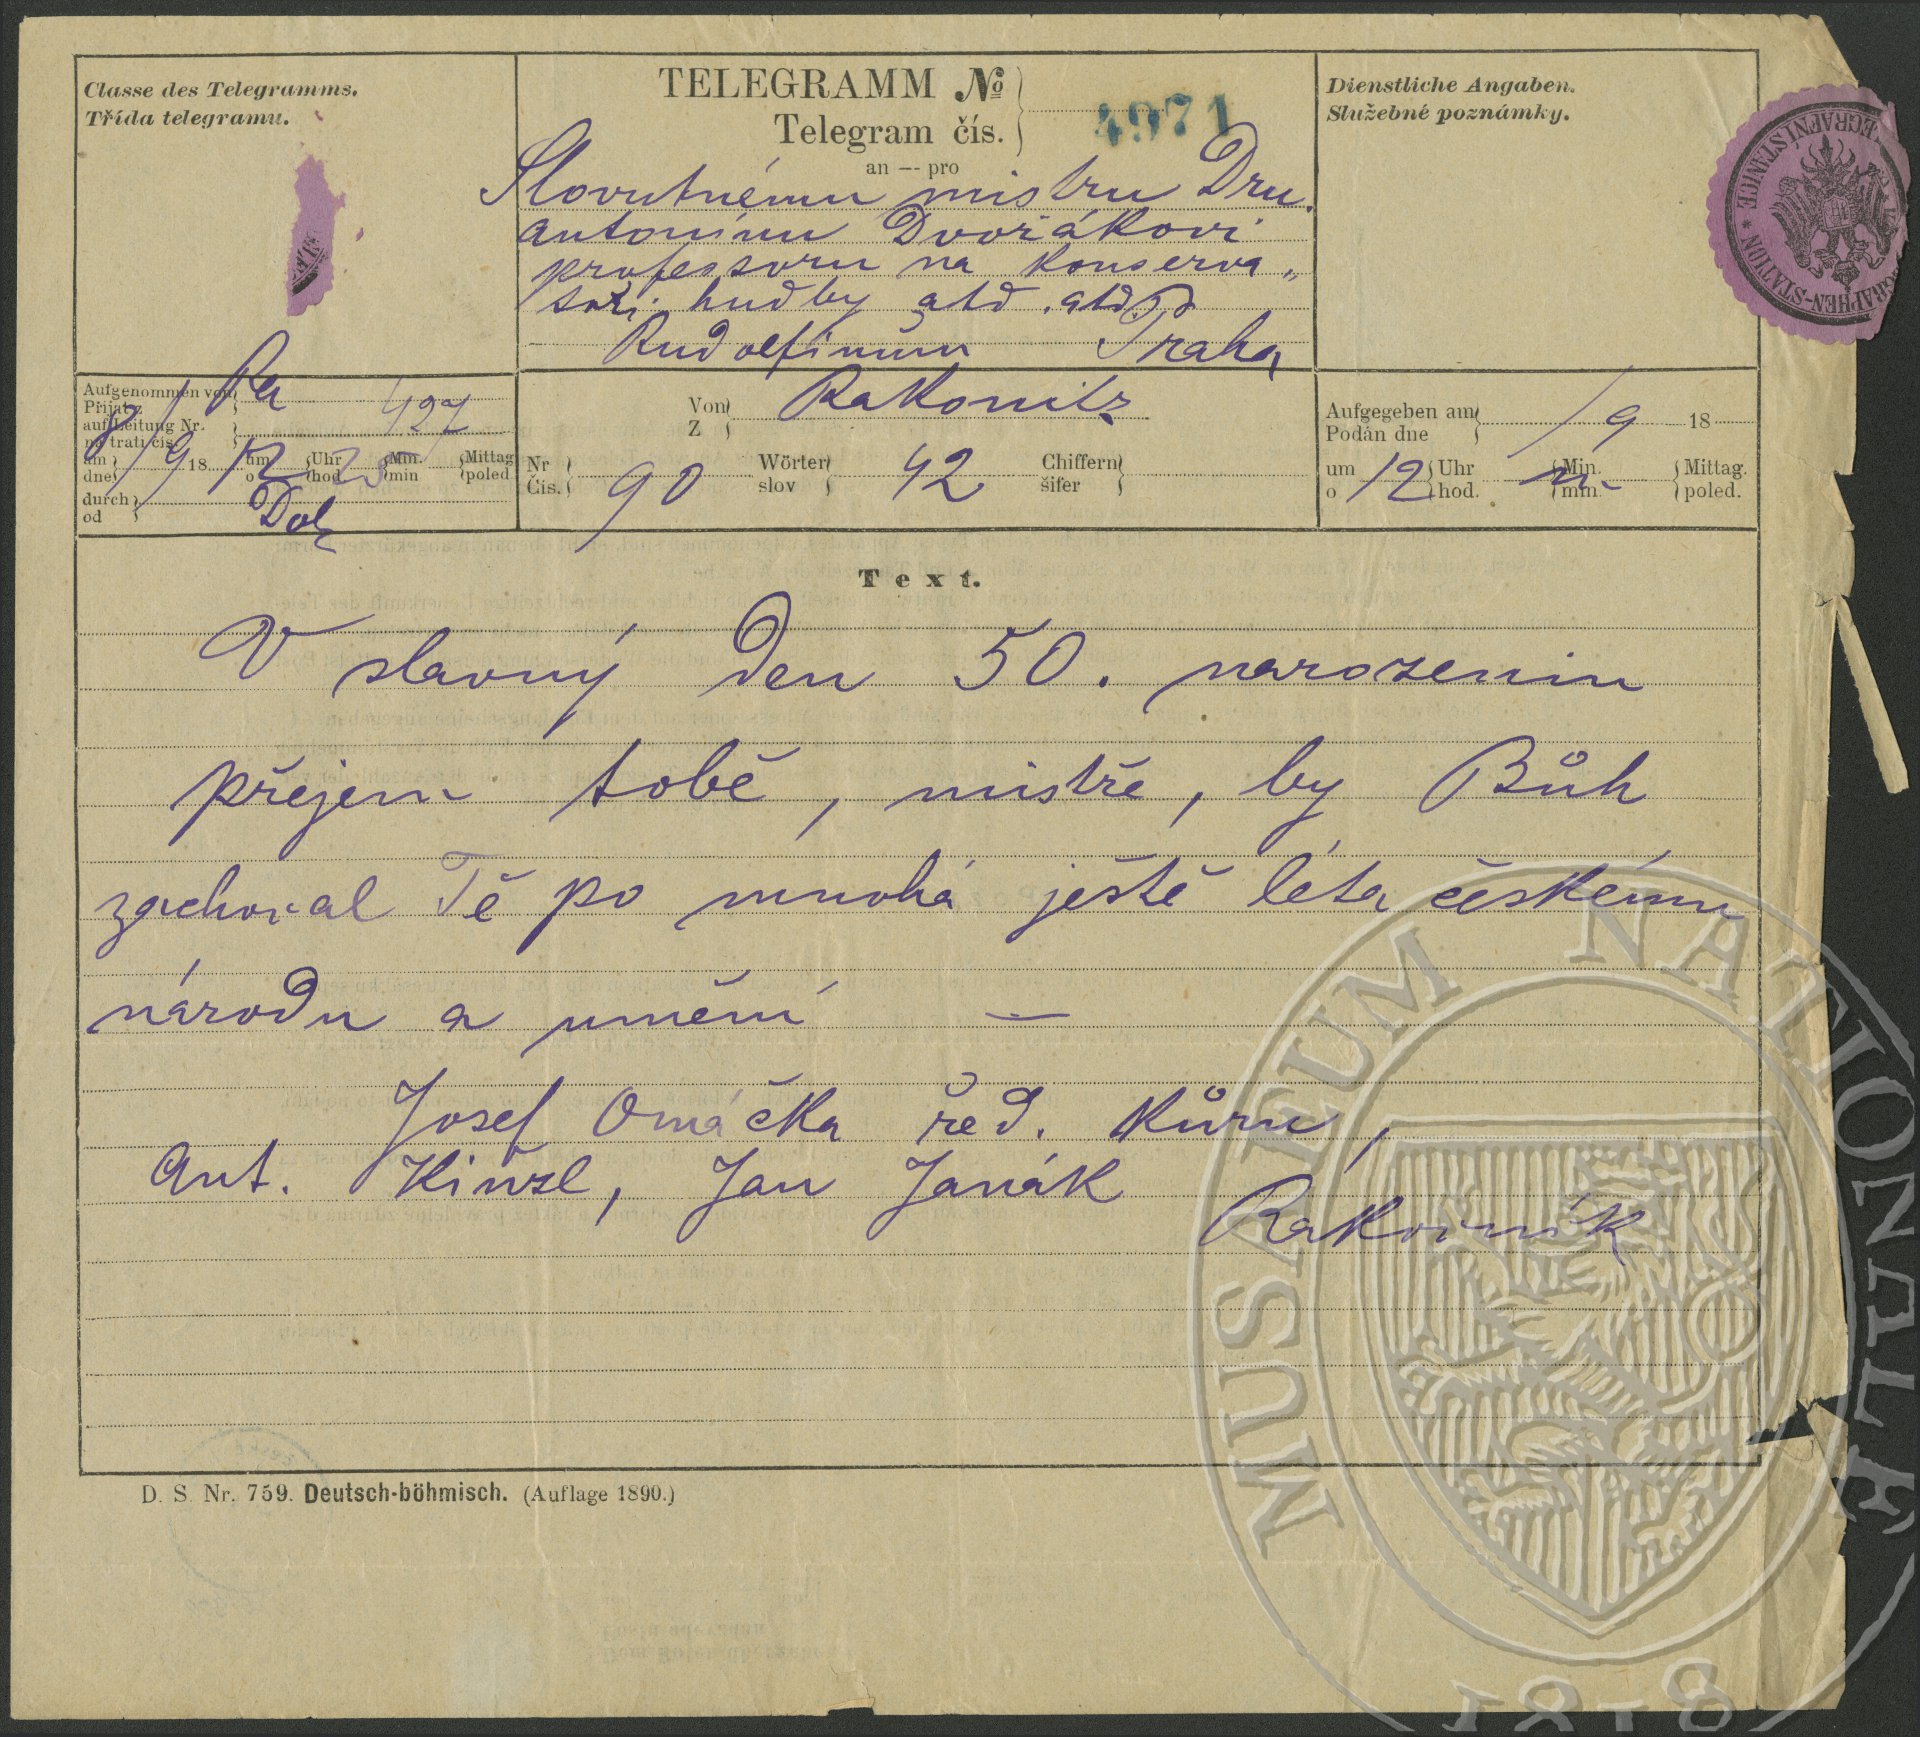 Classe des Telegramms.
Třída telegramu.
TELEGRAMM No
Telegram čís.
4971
an — pro
Slovutnému mistru Dru.
Antonínu Dvořákovi
professoru na konserva„
toři hudby atd. atd.
Rudolfinum Praha
Dienstliche Angaben.
Služebné poznámky.
TELEGRAPHEN-STATION * TELEGRAFNÍ STANICE
Aufgenommen von
Přijat z
auf Leitung Nr. 427
na trati čís.
am
dne 8/9 18 um
o 12 Uhr
hod. 25 Min.
min Mittag
poled
durch
od
Von
Z Rakonitz
Nr
Čís. 90 Wörter
slov 42 Chiffern
šifer
Aufgegeben am
Podán dne /9 18
um
o 12 Uhr
hod. Min.
min. Mittag.
poled.
Text.
V slavný den 50. narozenin
přejem tobě, mistře, by Bůh
zachoval Tě po mnohá ještě léta českému
národu a umění —
Josef Omáčka řed. kůru,
Ant. Kinzl, Jan Janák Rakovník
D. S. Nr. 759. Deutsch-böhmisch. (Auflage 1890.)
MUSAEUM NATIONALE
1818